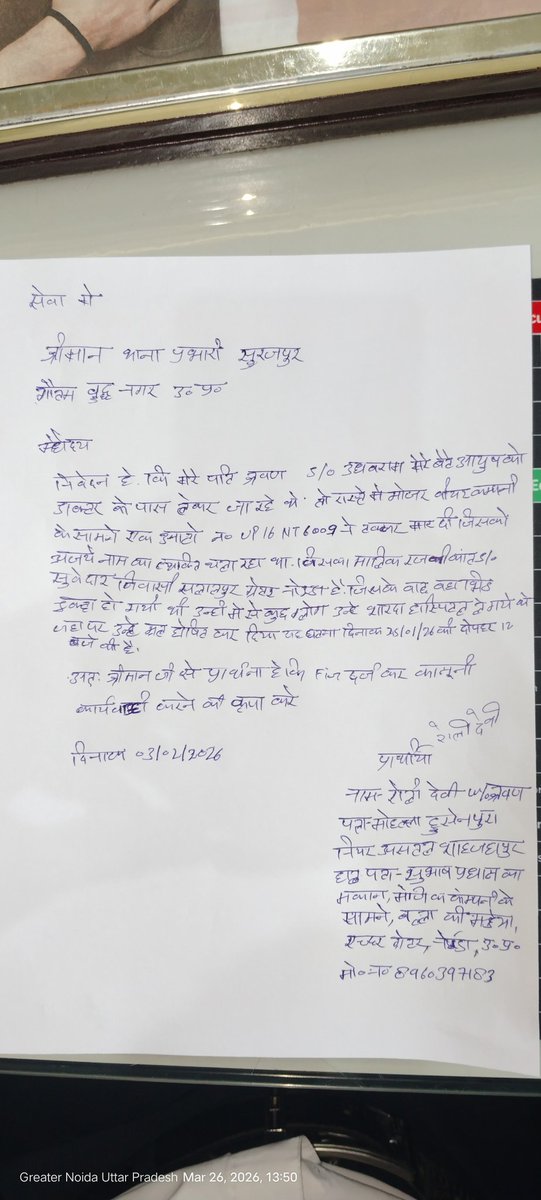 सेवा मे
श्रीमान थाना प्रभारी सुरजपुर
गौतम बुद्ध नगर उ० प्र०
महोदय
निवेदन है. कि मेरे पति श्रवण S/o उधवराम मेरे बेटे आयुष को
डाक्टर के पास लेकर जा रहे थे. तो रास्ते मे मोजर वीयर कम्पनी
के सामने एक न० UP16 NT6009 ने टक्कर मार दी जिसको
अजय नाम का व्यक्ति चला रहा था. जिसका मालिक रजनीकांत S/o
सुबेदार निवासी ग्रेटर नोएडा है. जिसके बाद वहा भिड
इकट्ठा हो गयी थी उन्ही मे से कुछ लोग उन्हे शारदा हास्पिटल ले गये थे
जहा पर उन्हे मृत घोषित कर दिया यह घटना दिनांक 25/01/26 की दोपहर 12
बजे की है.
अतः श्रीमान जी से प्रार्थना है कि Fir दर्ज कर कानूनी
कार्यवाही करने की कृपा करे
रोली देवी
दिनांक 03/02/2026
प्रार्थीया
नाम- रोली देवी w/o श्रवण
पता-मोहल्ला हुसेनपुरा
नियर शाहजहापुर
हाल पता- सुभाष प्रधान का
मकान, कम्पनी के
सामने,
ग्रेटर, नोएडा, उ० प्र०
मो० न० 8960397183
Greater Noida Uttar Pradesh Mar 26, 2026, 13:50